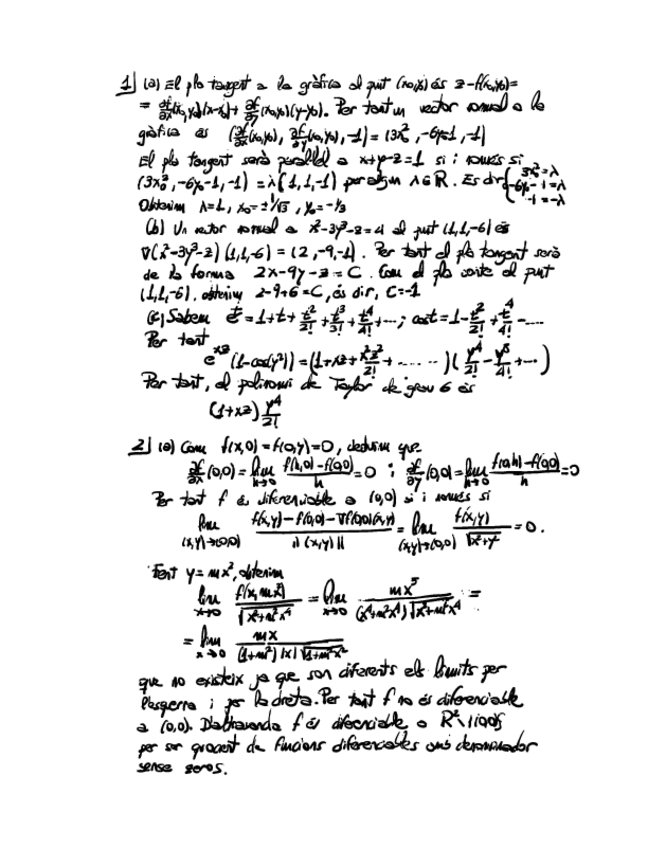 1) (a) El pla tangent a la gràfica al punt (x₀,y₀) és z-f(x₀,y₀)=
= ∂f/∂x(x₀,y₀)(x-x₀)+ ∂f/∂y(x₀,y₀)(y-y₀). Per tant un vector normal a la
gràfica és (∂f/∂x(x₀,y₀), ∂f/∂y(x₀,y₀), -1) = (3x₀², -6y₀-1, -1)
El pla tangent serà paral·lel a x+y-z=1 si i només si
(3x₀², -6y₀-1, -1) = λ(1,1,-1) per algun λ∈R. És dir { 3x₀²=λ
-6y₀-1=λ
-1=-λ
Obtenim λ=1, x₀=±1/√3, y₀=-1/3
(b) Un vector normal a x²-3y³-z=4 al punt (1,1,-6) és
∇(x²-3y³-z)(1,1,-6) = (2,-9,-1). Per tant el pla tangent serà
de la forma 2x-9y-z=C. Com el pla conté el punt
(1,1,-6), obtenim 2-9+6=C, és dir, C=-1
(c) Sabem eᵗ=1+t+t²/2!+t³/3!+t⁴/4!+...; cos t=1-t²/2!+t⁴/4!-....
Per tant
e^{xz}(1-cos(y²)) = (1+xz+x²z²/2!+.....)(y⁴/2!-y⁸/4!+...)
Per tant, el polinomi de Taylor de grau 6 és
(1+xz) y⁴/2!
2) (a) Com f(x,0)=f(0,y)=0, deduim que
∂f/∂x(0,0)=lim_{h→0} (f(h,0)-f(0,0))/h=0 i ∂f/∂y(0,0)=lim_{h→0} (f(0,h)-f(0,0))/h=0
Per tant f és diferenciable a (0,0) si i només si
lim_{(x,y)→(0,0)} (f(x,y)-f(0,0)-∇f(0,0)(x,y))/||(x,y)|| = lim_{(x,y)→(0,0)} f(x,y)/√(x²+y²) = 0.
Fent y=mx², obtenim
lim_{x→0} f(x,mx²)/√(x²+m²x⁴) = lim_{x→0} mx⁵/((x⁴+m²x⁴)√(x²+m²x⁴)) =
= lim_{x→0} mx/((1+m²)|x|√(1+m²x²))
que no existeix ja que son diferents els límits per
l'esquerra i per la dreta. Per tant f no és diferenciable
a (0,0). D'altra banda f és diferenciable a R²\{(0,0)}
per ser quocient de funcions diferenciables amb denominador
sense zeros.